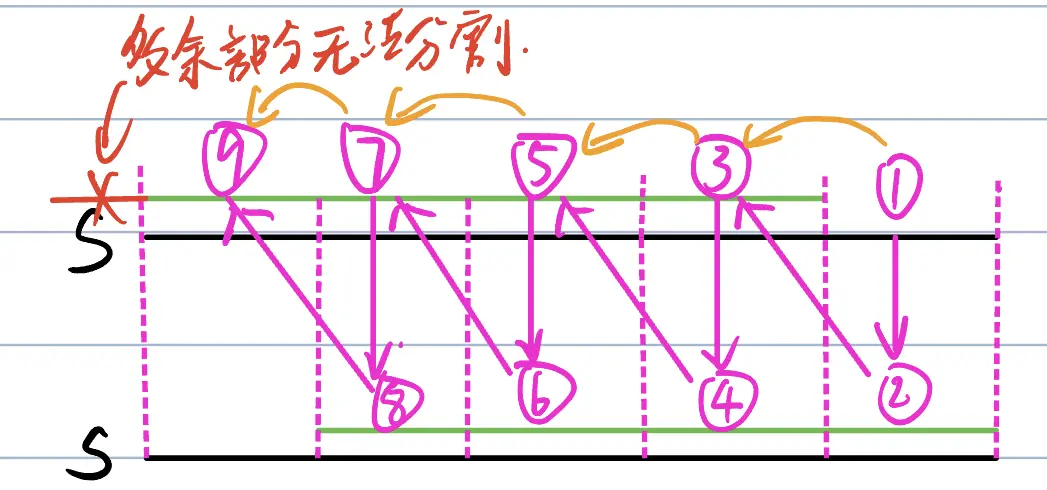 多余部分无法分割.
⑨ ⑦ ⑤ ③ ①
S
⑧ ⑥ ④ ②
S